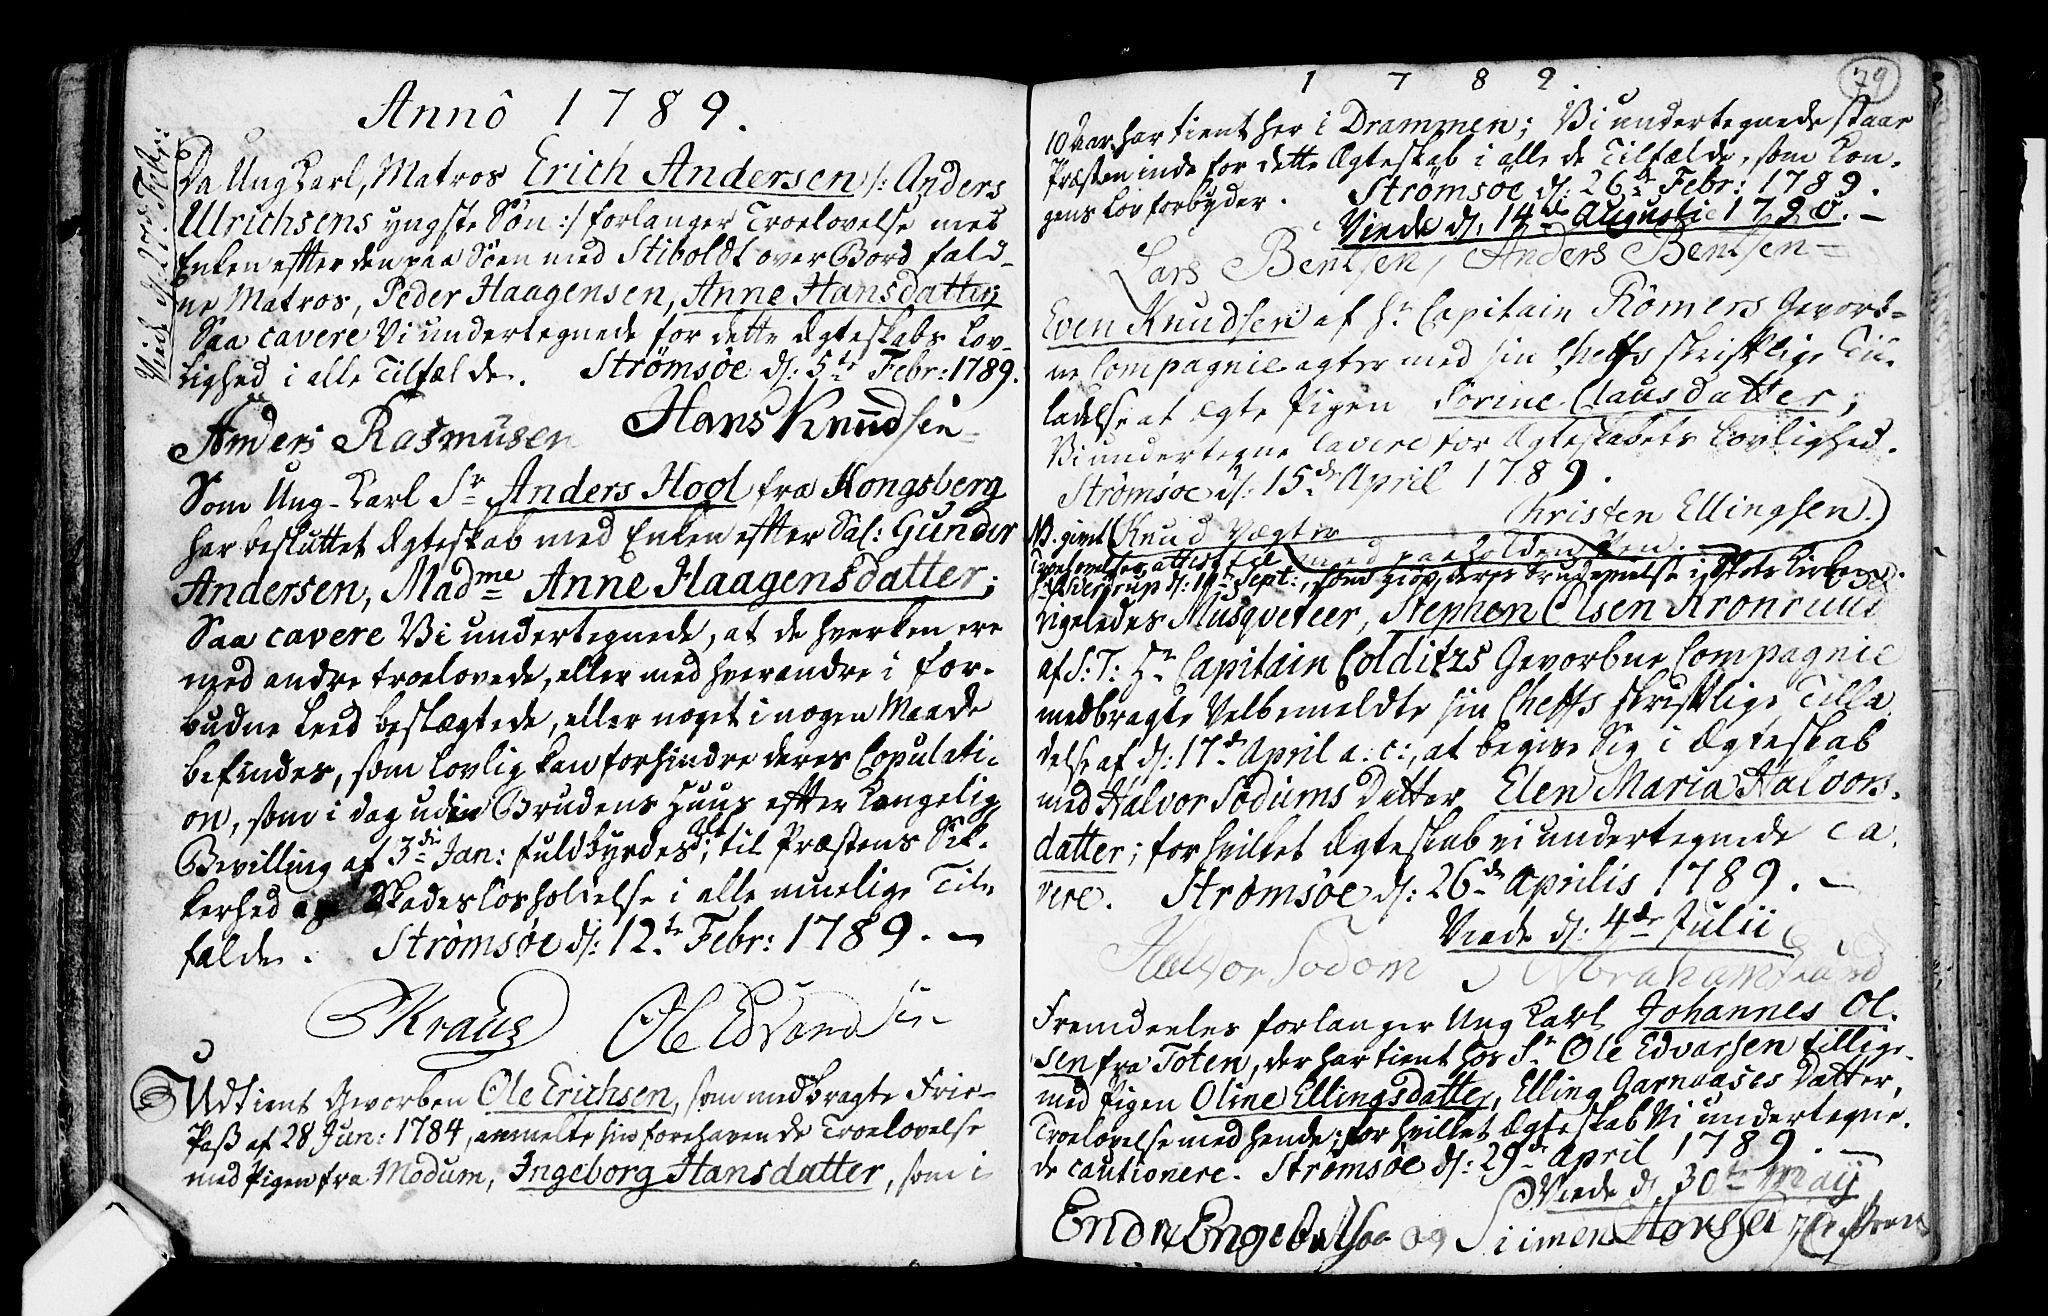 Annô 1789.
Viede d: 27de Febr:
Da Ung Karl, Matros Erich Andersen /: Anders
Ulrichsens yngste Søn :/ forlanger Troelovelse med
Enken efter den paa Söen med Stiboldt over Bord fald-
ne Matros, Peder Haagensen, Anne Hansdatter;
Saa cavere Vi undertegnede for dette Ægteskabs Lov-
lighed i alle Tilfælde. Strømsøe d: 5te Febr: 1789.
Anders Rasmusen Hans Knudsen
Som Ung-Karl Sr Anders Hool fra Kongsberg
har besluttet Ægteskab med Enken efter Sal: Gunder
Andersen, Madme Anne Haagensdatter;
Saa cavere Vi undertegnede, at de hverken ere
med andre troelovede, eller med hverandre i for-
budne Leed beslægtede, eller noget i nogen Maade
befindes, som lovlig kan forhindre deres Copulati-
on, som i dag udi Brudens Huus efter Kongelig
Bevilling af 3die Jan: fuldbyrdes; til Præstens Sik-
kerhed og Skadesløsholdelse i alle muelige Til-
fælde. Strømsøe d: 12te Febr: 1789. -
Kraus Ole Edvardsen
Udtient Gevorben Ole Erichsen, som medbragte Frie-
Pass af 28 Jun: 1784, anmelte sin forehavende Troelovelse
med Pigen fra Modum, Ingeborg Hansdatter, som i
1789. 79
10 Aar har tient her i Drammen; Vi undertegnede staar
Præsten inde for dette Ægteskab i alle de Tilfælde, som Kon-
gens Lov forbyder. Strømsöe d: 26de Febr: 1789.
Viede d: 14de Augusti 1790. -
Lars Bentsen, Anders Bentsen
Even Knudsen af Hr Capitain Römers Gevorb-
ne Compagnie agter med sin Cheffs skriftlige Til-
ladelse at ægte Pigen Sorine Clausdatter;
Vi undertegne cavere for Ægteskabets Lovlighed.
Strømsøe d: 15de April 1789.
Knud Vægter Christen Ellingsen.
med paaholden Pen.
NB. givet
Troelovelses attest til
d: 14de Sept:, som giør deres Brudevielse i Kirken.
Ligeledes Musqveteer, Stephen Olsen Kronrud
af S: T: Hr Capitain Colditzs Gevorbne Compagnie
medbragte Velbemeldte sin Cheffs skriftlige Tilla-
delse af d: 17de April a: c:, at begive Sig i Ægteskab
med Halvor Sodums Datter Elen Maria Halvors-
datter; for hvilket Ægteskab vi undertegnede ca-
vere. Strømsøe d: 26de Aprilis 1789. -
Viede d: 4de Julii
Halvor Sodom Abraham
Fremdeeles forlanger Ung Karl Johannes Ol-
sen fra Toten, der har tient hos Sr Ole Edvarsen tillige-
med Pigen Oline Ellingsdatter, Elling Garnaases Datter,
Troelovelse med hende; for hvilket Ægteskab Vi undertegne-
de cautionere. Strømsøe d: 29de April 1789. -
Viede d: 30te Maij
Endre Engebretsen og Siimen